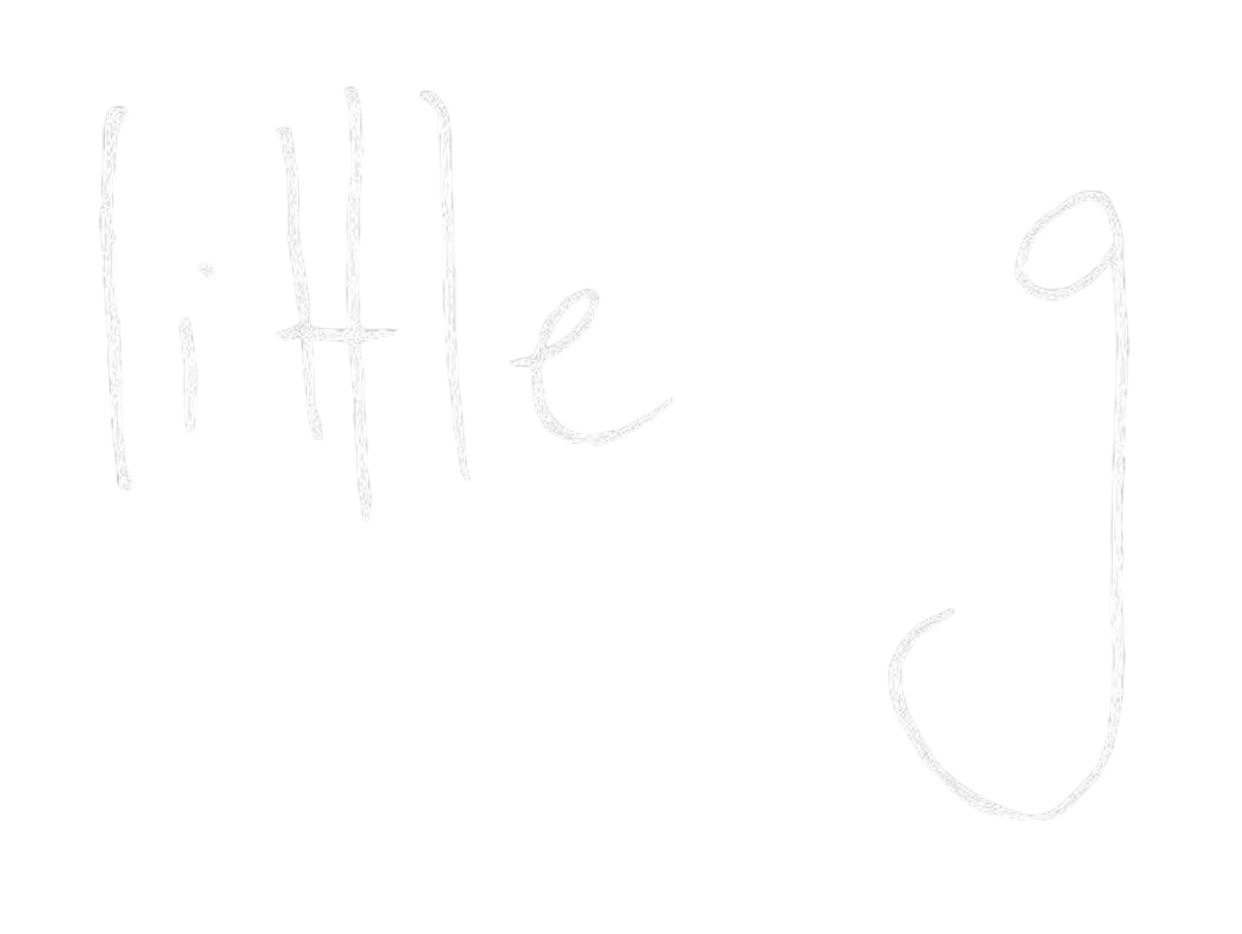 little g